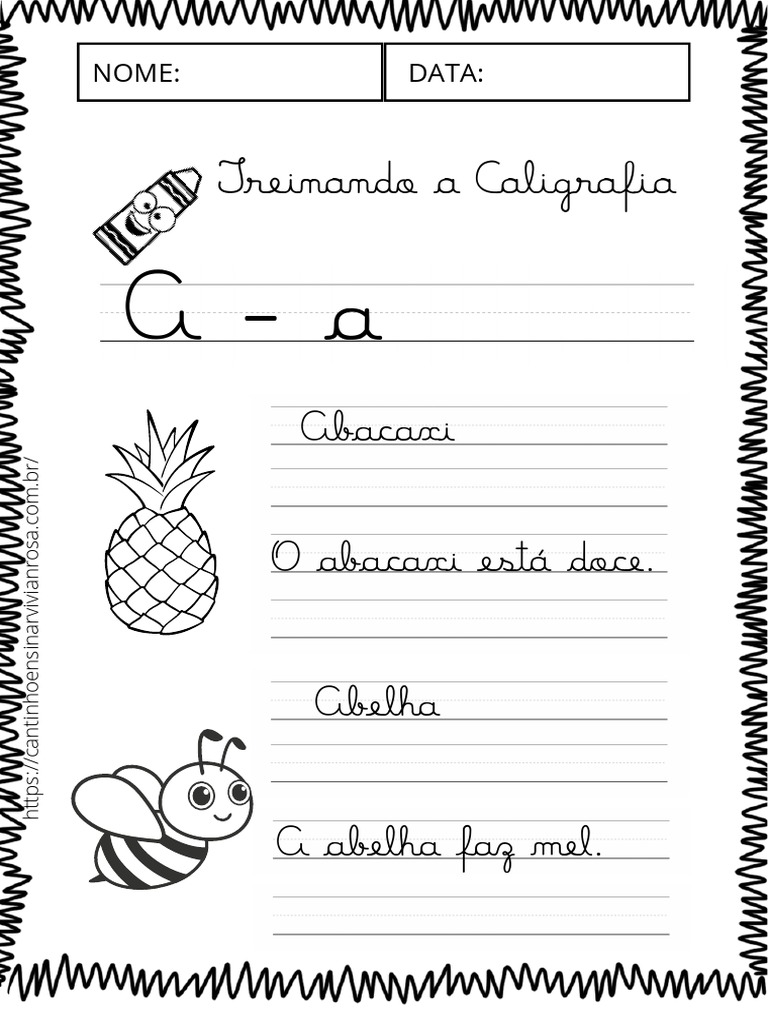 NOME: DATA:
Treinando a Caligrafia
A - a
Abacaxi
O abacaxi está doce.
Abelha
A abelha faz mel.
https://cantinhoensinarvivianrosa.com.br/